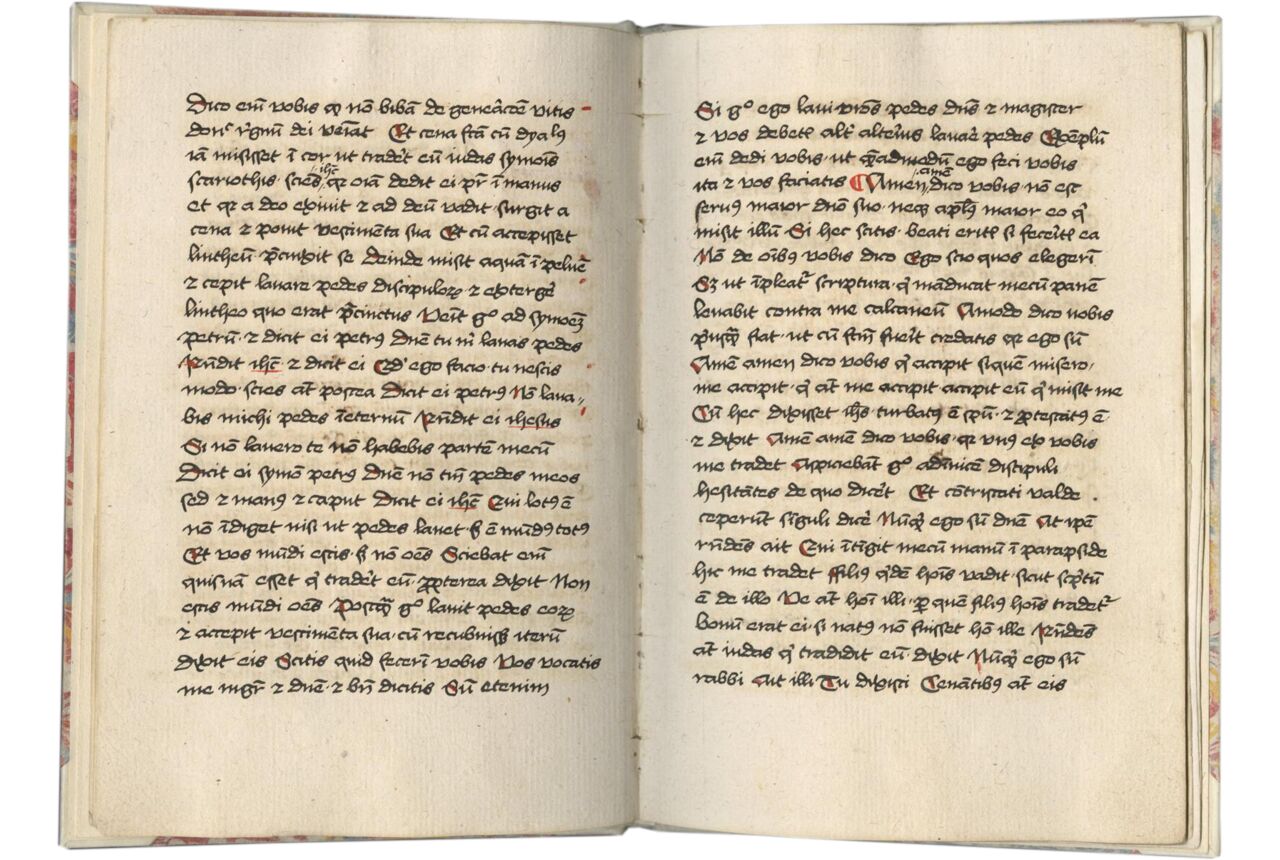 Dico em̄ vobis qͥ nō bibā de geneͣcōe vitis
donͨ rͤgnū dei veīat Et cena fcā cū dyalꝰ
iā misisset ī cor ut tradͤt eū iudas symoīs
scariothis · sciēs ihc̄ qꝛ oīa dedit ei pr̄ ī manus
et qꝛ a deo exiuit ⁊ ad deū vadit · surgit a
cena ⁊ poīt vestimēta sua Et cū accepisset
lintheū p̄cinxit se Deinde misit aquā ī peluē
⁊ cepit lavare pedes discipuloꝝ ⁊ extergͤe
lintheo quo erat p̄cinctus Veīt gͦ ad symoeꝫ
petrū · ⁊ dicit ei petrꝰ dn̄e tu mͥ lavas pedes
Rn̄dit ihc̄ ⁊ dicit ei Qd̕ ego facio · tu nescis
modo · scies at̄ postea Dicit ei petrꝰ Nō lava-
bis michi pedes īeternū Rn̄dit ei ihesus
Si nō lauero te nō habebis partē mecū
Dicit ei symō petrꝰ Dn̄e nō tm̄ pedes meos
sed ⁊ manꝰ ⁊ caput Dicit ei ihc̄ Qui lotꝰ ē
nō īdiget nisi ut pedes lauet · ꜩ ē mūdꝰ totꝰ
Et vos mūdi estis · ꜩ nō oēs Sciebat em̄
quisnā esset qͥ tradͤt eū · ꝓpterea dixit Non
estis mūdi oēs Postqͣ gͦ lauit pedes eoꝝ
⁊ accepit vestimēta sua · cū recubuissꝫ iterū
dixit eis Scitis quid fecerī vobis Vos vocatis
me mgr̄ ⁊ dn̄e · ⁊ bn̄ dicitis Sū etenim
Si gͦ ego laui vr̄os pedes dn̄s ⁊ magister
⁊ vos debetꝭ altͤr alterius lauaͤ pedes Exēplū
em̄ dedi vobis · ut qͣadmodū ego feci vobis
ita ⁊ vos faciatis Amen amē dico vobis nō est
seruꝰ maior dn̄o suo · neqꝫ apl̄ꝰ maior eo qͥ
misit illū Si hec scitis · beati eritꝭ si fecͤitꝭ ea
Nō de oībꝰ vobis dico Ego scio quos elegerī
Sꝫ ut īpleatᷣ scriptura · qͥ māducat mecū panē
leuabit contra me calcaneū Amodo dico vobis
pͥusqͣ fiat · ut cū fcm̄ fueͤit credatis qꝛ ego sū
Amē amen dico vobis qͥ accipit siquē misero ·
me accipit · qͥ at̄ me accipit accipit eū qͥ misit me
Cū hec dixisset ih̄s · turbatꝰ ē spū · ⁊ ꝓtestatꝰ ē ·
⁊ dixit Amē amē dico vobis · qꝛ vnꝰ ex vobis
me tradet Aspiciebāt gͦ adīuicē discipuli
hesitātes de quo dicͤet Et cōtristati valde ·
ceperūt sīguli dicͤe Nūqͥd ego sū dn̄e At ip̄e
rn̄dēs ait Qui ītīgit mecū manū ī parapside
hic me tradet ffiliꝰ qͥdē hoīs vadit · sicut sc̄ptū
ē de illo Ve at̄ hoī illi · ꝑ quē filiꝰ hoīs tradetᷣ
bonū erat ei · si natꝰ nō fuisset hō ille Rn̄dēs
at̄ iudas qͥ tradidit eū · dixit Nūqͥd ego sū
rabbi Ait illi Tu dixisti Cenātibꝰ at̄ eis